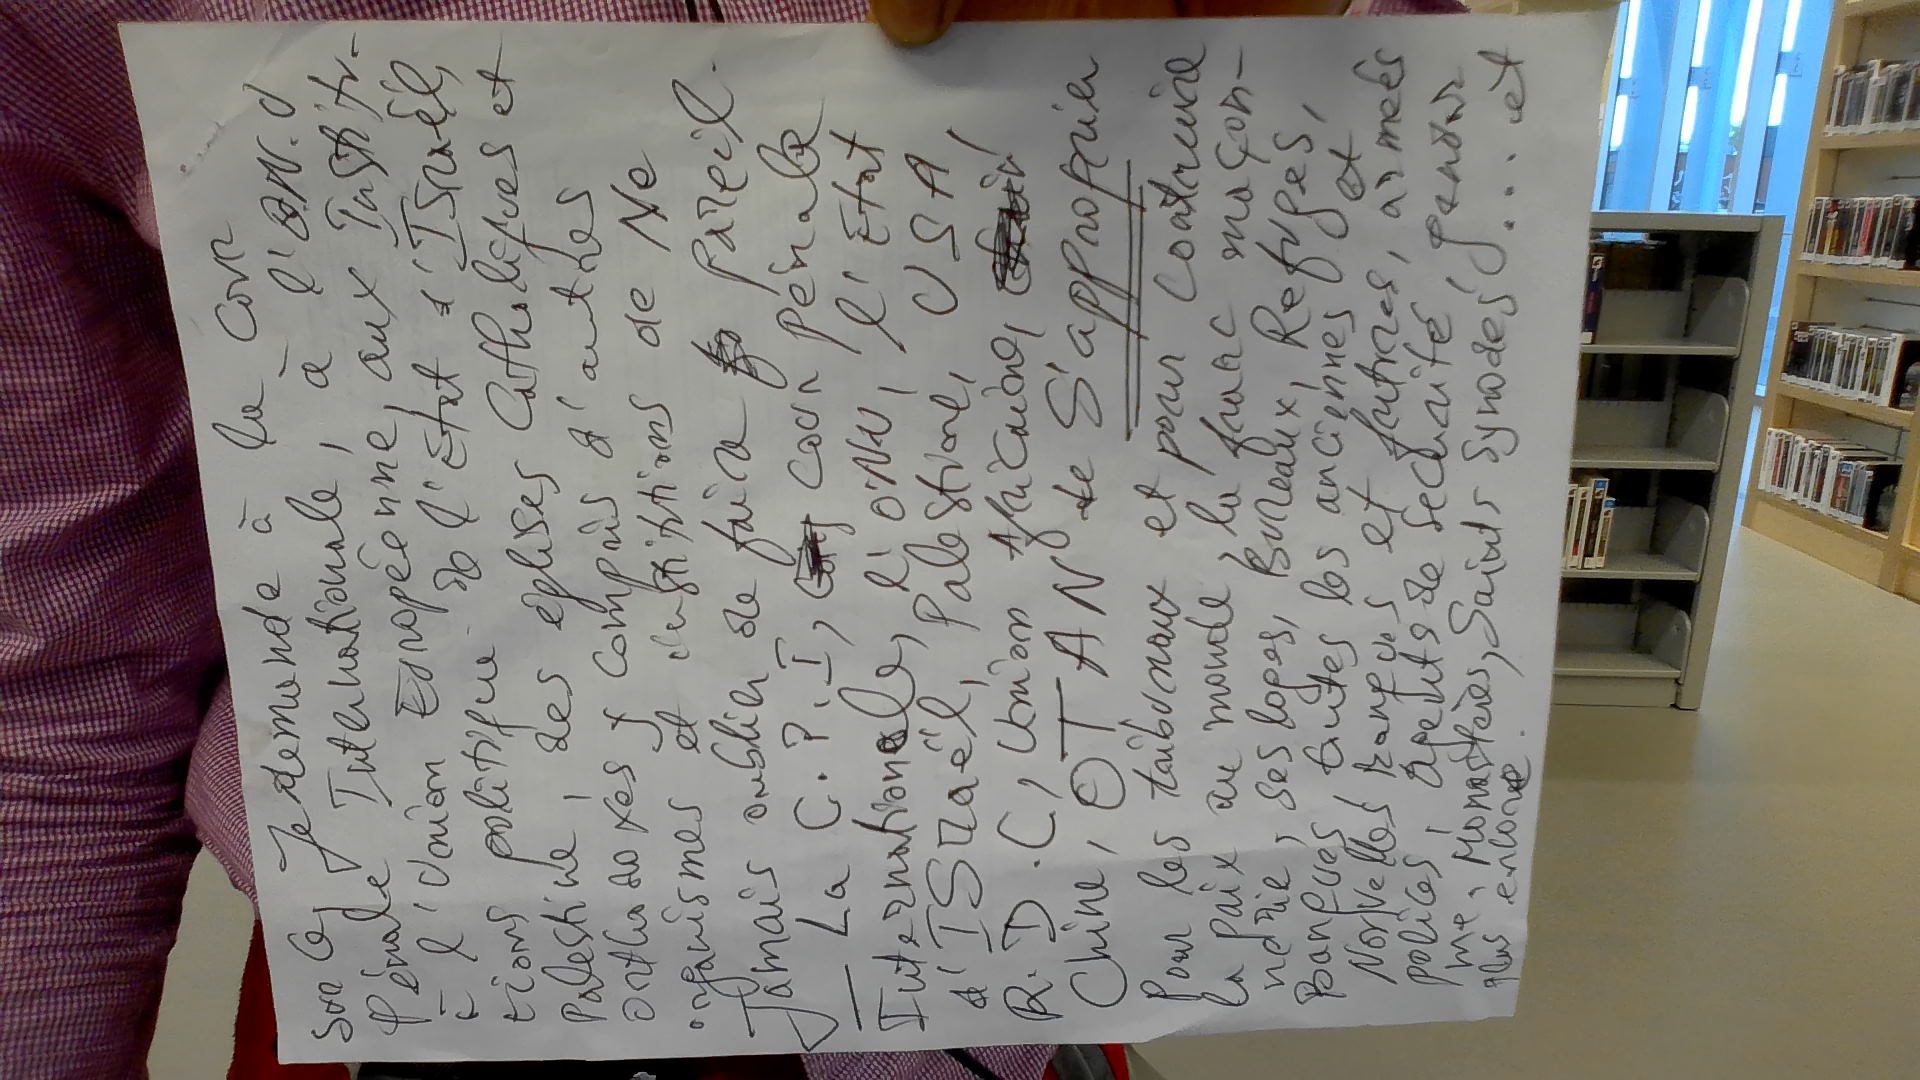 Je demande à la Cour
pénale Internationale, à l'ONU
à l'Union Européenne, aux Institu-
tions politique de l'Etat d'Israël,
Palestine, des églises Catholiques et
orthodoxes y compris d'autres
organismes et institutions de Ne
Jamais oublier de faire pareil.
La C.P.I, Cour pénale
Internationale, l'ONU, l'Etat
d'ISraël, Palestine, USA,
R.D.C, Union Africaine,
Chine, OTAN de S'approprier
Pour les tribunaux et pour Contrecia
la paix au monde la franc maçon-
nerie, ses loges, Bureaux, Refuges,
Banques toutes les anciennes et
Norvelles banques et futures, armées
polices, agents de securité
Monastères, Saints Synodes ... et
plus encore.